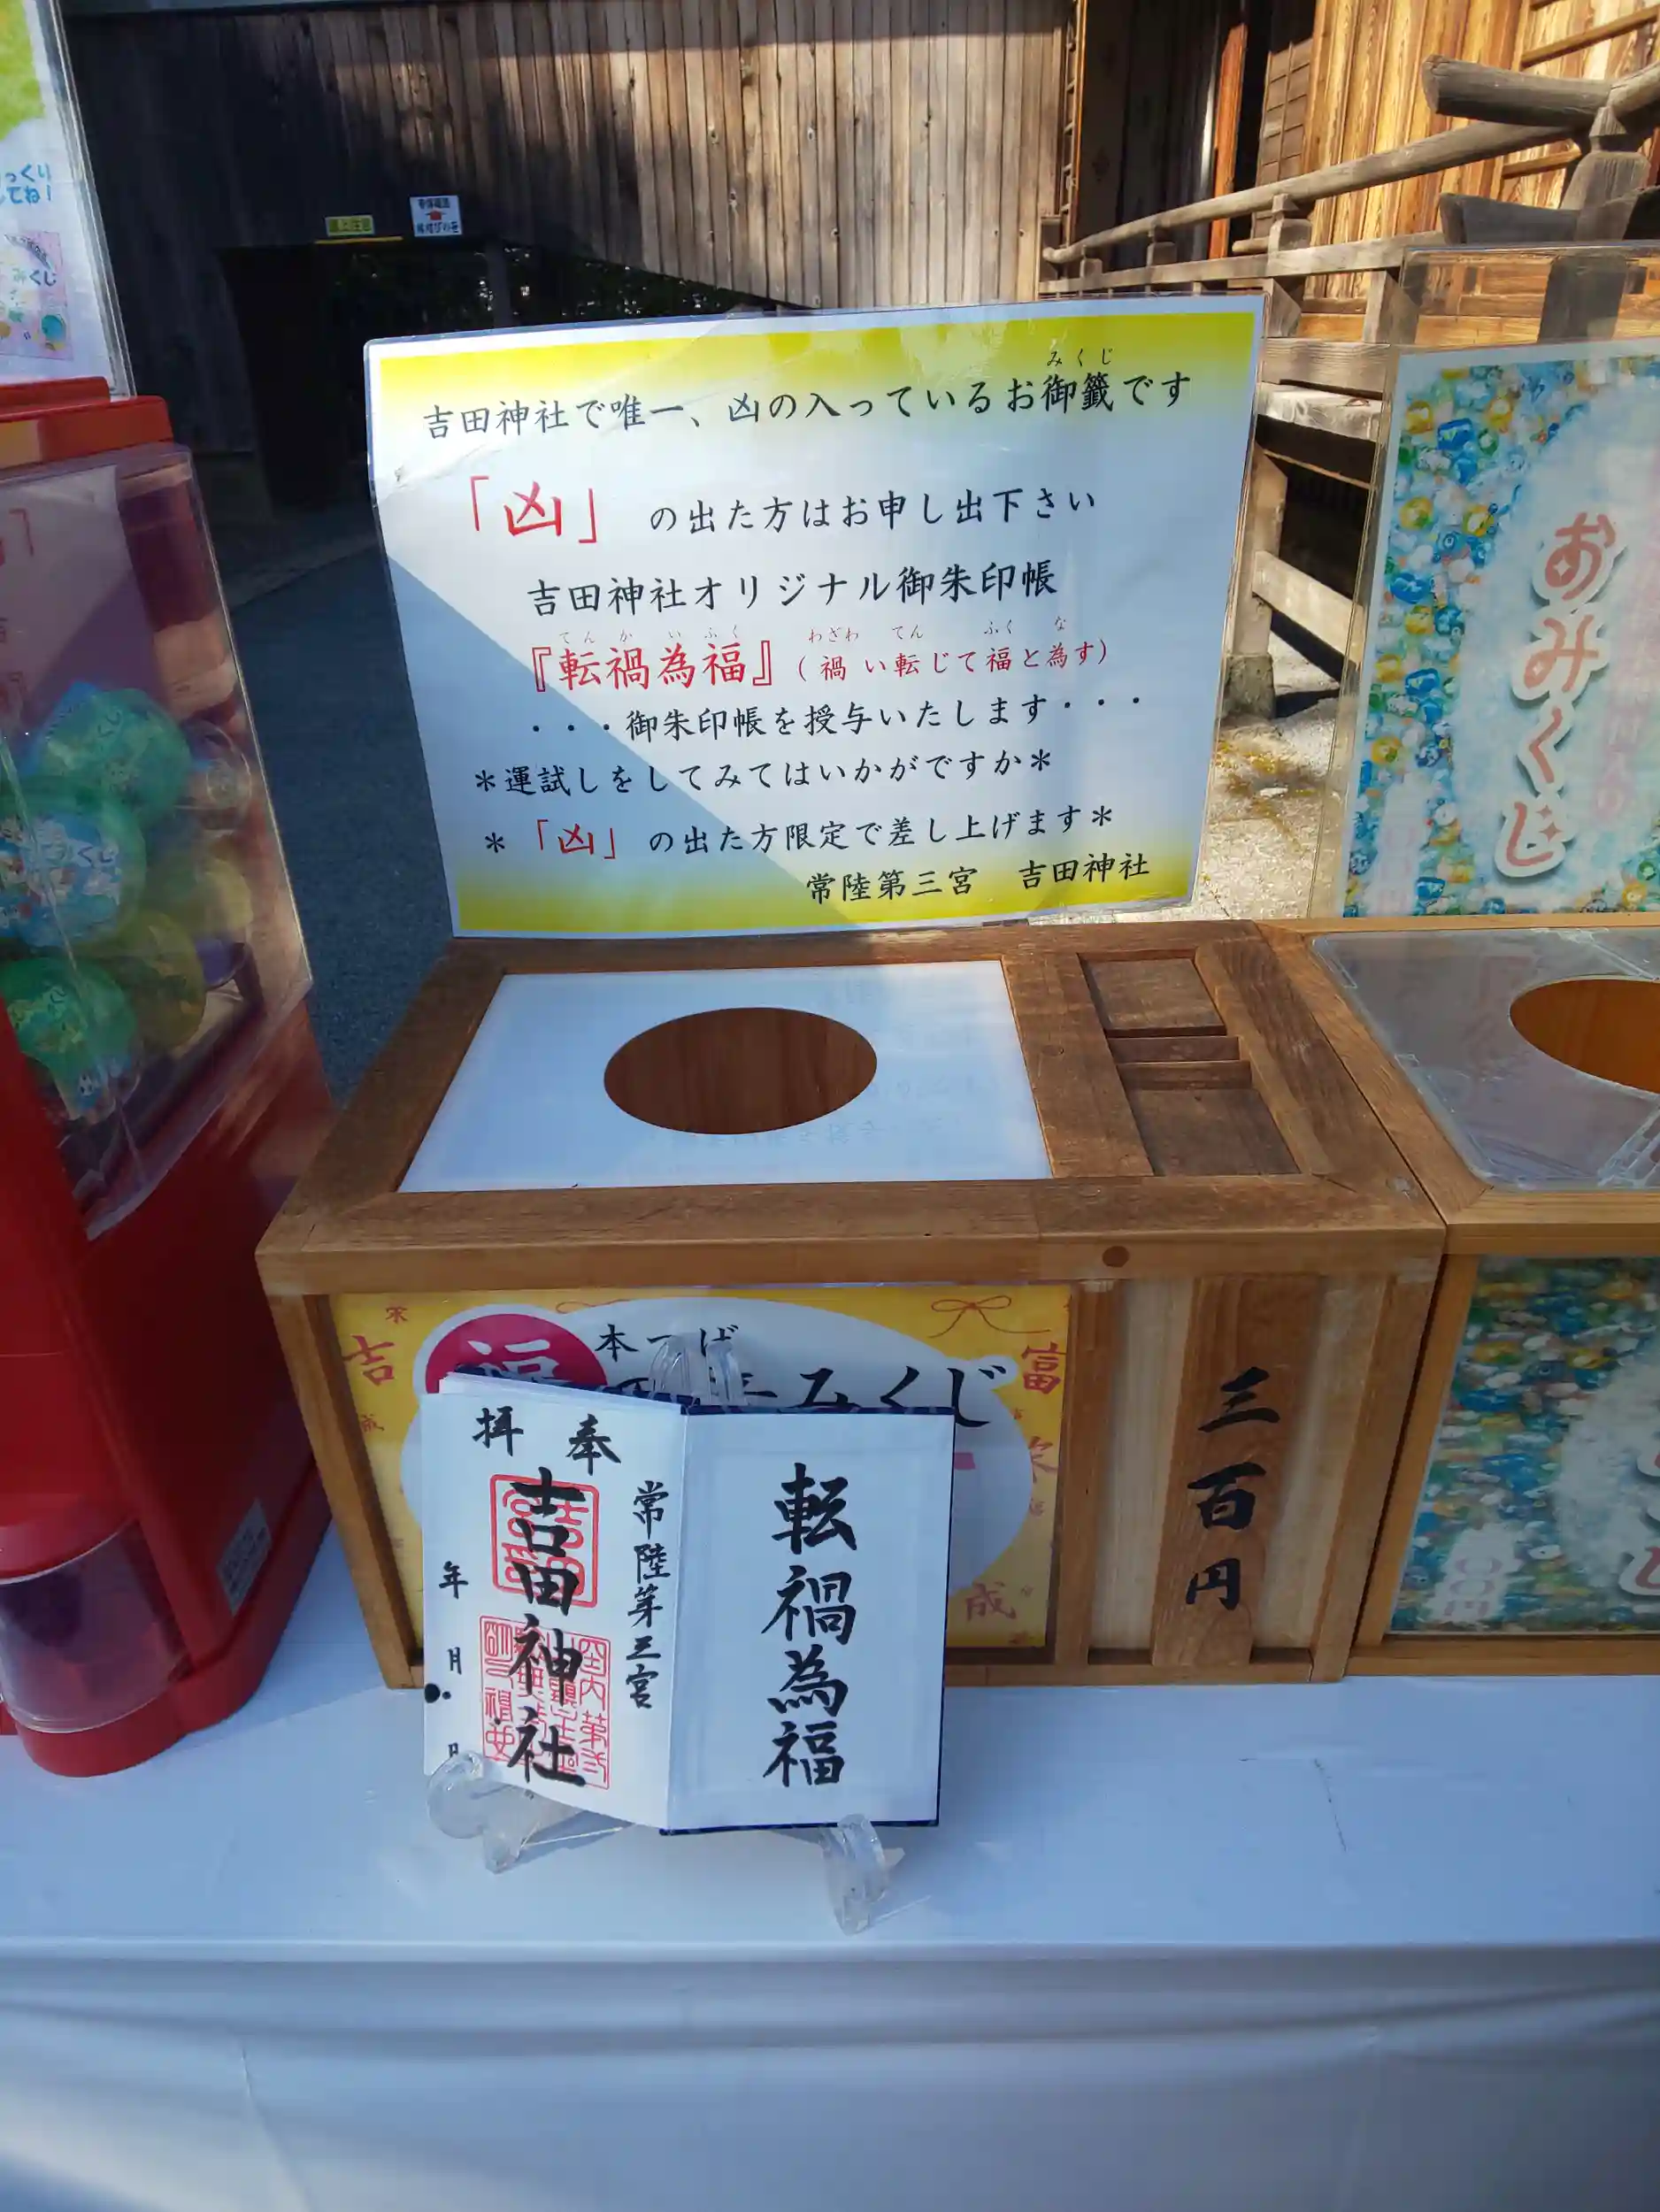 っくり
してね！
みくじ
頭上注意
吉田神社で唯一、凶の入っているお御籤です
みくじ
「凶」の出た方はお申し出下さい
吉田神社オリジナル御朱印帳
てんかいふく わざわ てん ふく な
『転禍為福』（禍い転じて福と為す）
・・・御朱印帳を授与いたします・・・
＊運試しをしてみてはいかがですか＊
＊「凶」の出た方限定で差し上げます＊
常陸第三宮 吉田神社
おみくじ
吉
福
本つば
みくじ
富
成
三百円
転禍為福
常陸第三宮
奉拝
吉田神社
年 月 日